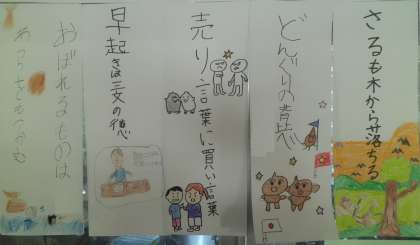 さるも木から落ちる
どんぐりの背
売り言葉に買い言葉
早起きは三文の徳
おぼれるものは
わらをもつかむ